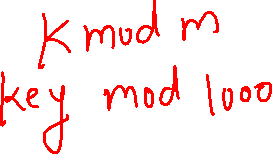 K mod m
key mod 1000